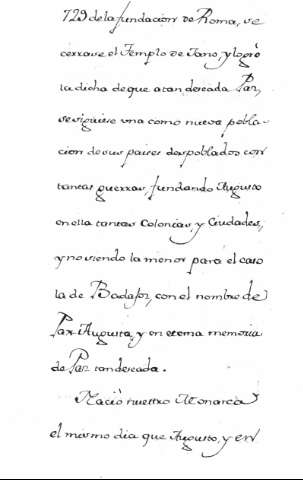 729 de la fundacion de Roma, se
cerrase el Templo de Jano, y logró
la dicha de que a tan deseada Paz,
se siguiese una como nueva pobla-
cion de sus paises despoblados con
tantas guerras, fundando Augusto
en ella tantas Colonias, y Ciudades,
y no siendo la menor para el caso
la de Badajoz, con el nombre de
Pax Augusta, y en eterna memoria
de Paz tan deseada.
Nació nuestro Monarca
el mismo dia que Augusto, y en